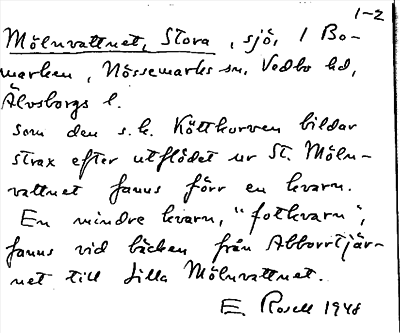 1-2
Mölnvattnet, Stora, sjö, i Bo-
marken, Nössemarks sn, Vedbo hd,
Älvsborgs l.
Som den s.k. Köttkorven bildar
strax efter utflödet ur St. Möln-
vattnet fanns förr en kvarn.
En mindre kvarn, "fotkvarn",
fanns vid bäcken från Abborrtjär-
net till Lilla Mölnvattnet.
E. Rosell 1948